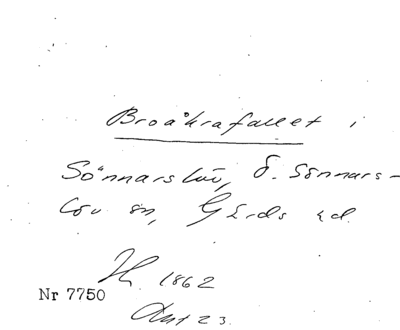 Broåkrafallet i
Sönnarslöv, Ö. Sönnars-
löv sn, Gärds hd.
H. 1862
Nr 7750
Ant 23.